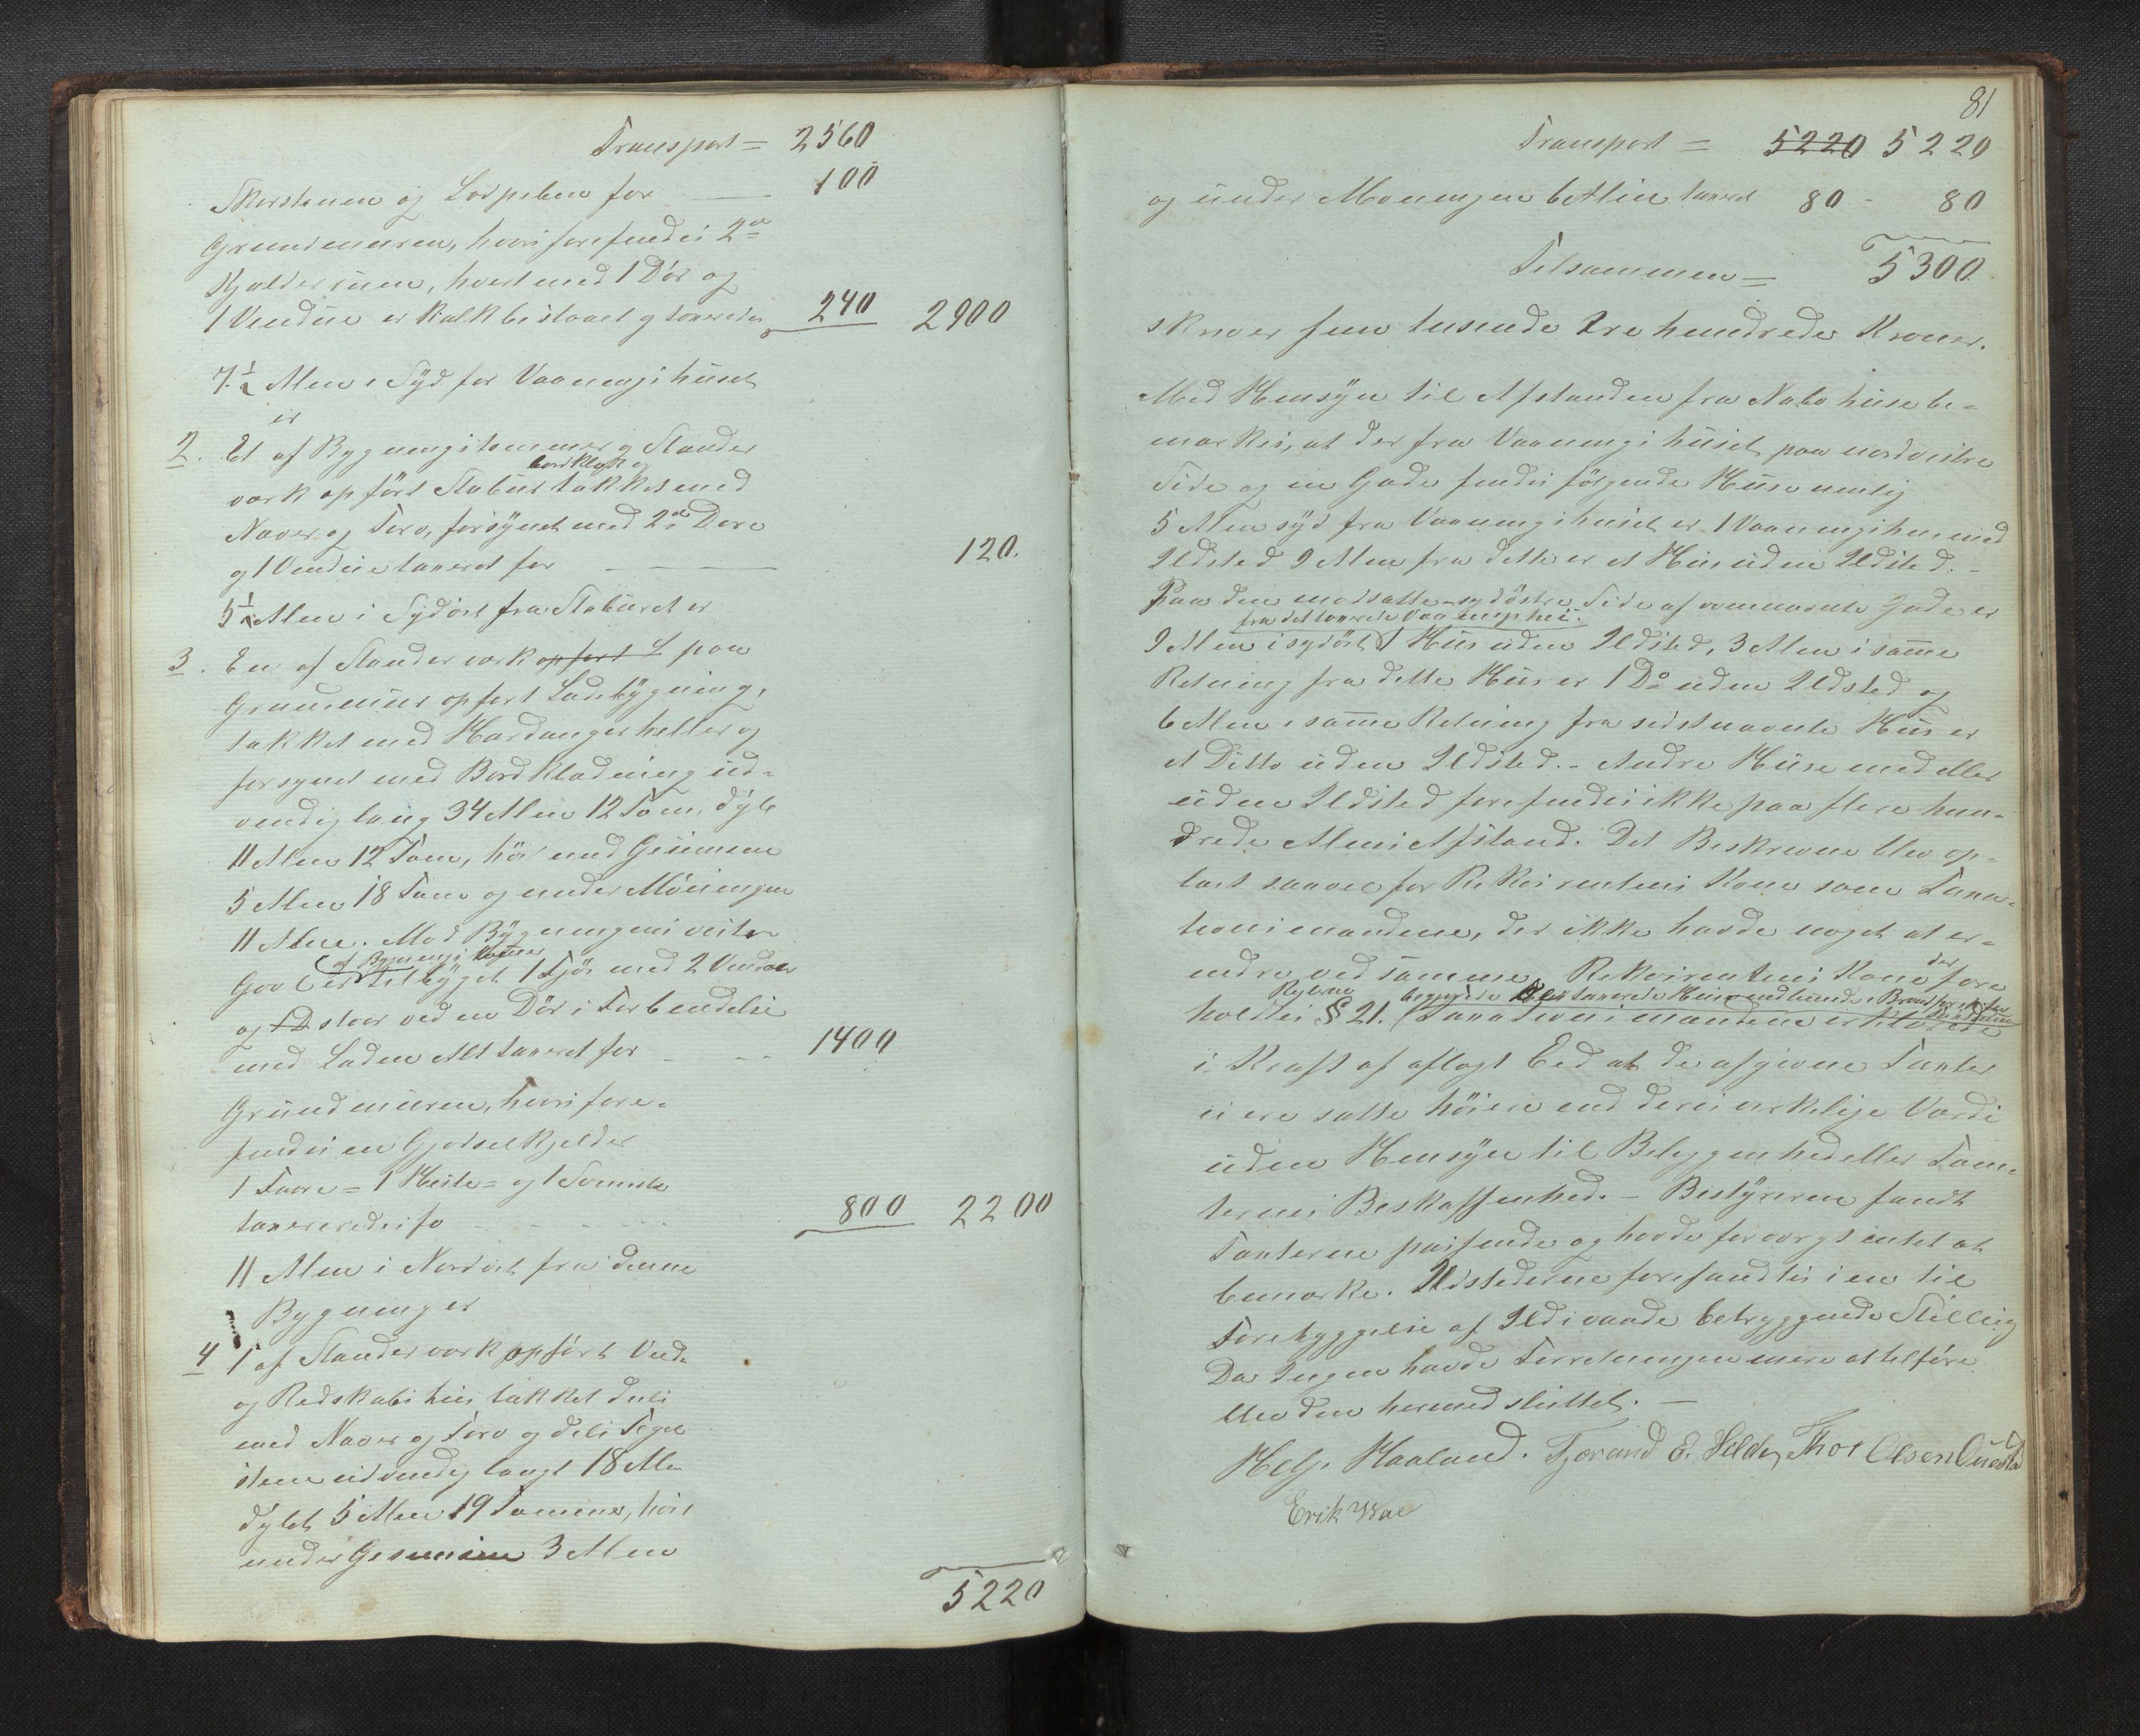 Transport = 2560
Skorstenen og Lodpiben for 100
Grundmuren, hvori forefindes 2de
Kjælderrum, hvert med 1 Dör og
1 Vindue er kalkbeslaaet og taxeredes 240 2900
7 1/2 Alen i Syd for Vaaningshuset
er
2. Et af Bygningstømmer og Stander
værk opfört Stabur bordklædt og takket med
Næver og Torv, forsynet med 2de Döre
og 1 Vindue taxeret for 120.
5 1/2 Alen i Sydöst fra Staburet er
3. En af Standerværk opfört L paa
Grundmuur opfört Ladebygning,
takket med Hardangerheller og
forsynet med Bordklædning ud-
vendig lang 34 Alen 12 Tom, dyb
11 Alen 12 Tom, höi und Gesimsen
5 Alen 18 Tom og under Möningen
11 Alen. Mod Bygningens vestre
Gavl er af Bygningstømmer tilbygget 1 Fjös med 2 Vinduer
og 1 D staar ved en Dör i Forbindelse
med Laden Alt taxeret for 1400
Grundmuren, hvori fore-
findes en Gjödselkjelder
1 Faare= 1 Heste= og 1 Svinesti
taxereredes fo 800 2200
11 Alen i Nordöst fra denne
Bygning er
4 1 af Standerværk opfört Ved-
og Redskabshus, takket dels
med Næver og Torv og dels Tegel
steen udvendig langt 18 Aln
dybt 5 Alen 19 Tommer, höit
under Gesimsen 3 Alen
5220
81
Transport = 5220 5220
og under Möningen 6 Alen taxeret 80 - 80
Tilsammen = 5300
skriver fem tusinde tre hundrede Kroner.
Med Hensyn til Afstanden fra Nabohuse be-
mærkes, at der fra Vaaningshuset paa nordvestre
Side og en Gade findes fölgende Huse nemlig
5 Alen syd fra Vaaningshuset er 1 Vaaningshus med
Ildsted 9 Alen fra dette er et Hus uden Ildsted. -
Paa den modsatte - sydöstre Side af ovennævnte Gade er
fra det taxerede Vaaningshus.
9 Alen i sydöst 1 Hus uden Ildsted, 3 Alen i samme
Retning fra dette Hus er 1 Do uden Ildsted og
6 Alen i samme Retning fra sidstnævnte Hus er
et Ditto uden Ildsted. - Andre Huse med eller
uden Ildsted forefindes ikke paa flere hun-
drede Alens Afstand. Det Beskrevne blev op-
læst saavel for Rekvirentens Kone som Taxa-
tionsmændene, der ikke havde noget at er-
indre ved samme. Rekvirentens Kone der fore
holdtes Reglerne § 21. begjærede det taxerede Huse indtaget i Brandforsikring Taxationsmændene erklærede
i Kraft af aflagt Eed at de afgivne Taxter
ei ere satte höiere end deres virkelige Værdi
uden Hensyn til Beliggenhed eller Tom-
ternes Beskaffenhed. - Bestyreren fandt
Taxterne passende og havde forövrigt intet at
bemærke. Ildstederne forefandtes i en til
Forebyggelse af Ildsvaade betryggende Stilling
Da Ingen havde Forretningen mere at tilföie
blev den hermed sluttet. -
Helje Haaland. Tjærand E. Selder, Thor Olsen
Erik Wae